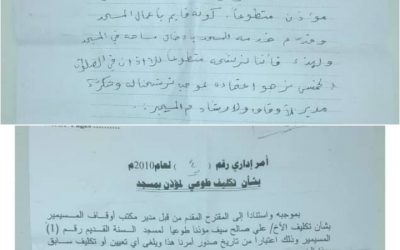 مؤذن متطوعاً. كونه قايم بأعمال المسجد
وقدم خدمة للمسجد بادخال مساحة في المسجد
ولهذا فاننا نرشحه متطوعاً للأذان في الصلوات
الخمس مع اعتماده
مدير الأوقاف والارشاد م المسيمير.
أمر إداري رقم ( ٤ ) لعام 2010م
بشأن تكليف طوعي لمؤذن بمسجد
بموجبه واستنادا إلى المقترح المقدم من قبل مدير مكتب أوقاف المسيمير
بشأن تكليف الأخ/ علي صالح سيف مؤذنا طوعيا لمسجد السنة القديم رقم (1)
المسيمير وذلك اعتبارا من تاريخ صدور أمرنا هذا ويلغى أي تعيين أو تكليف سابق